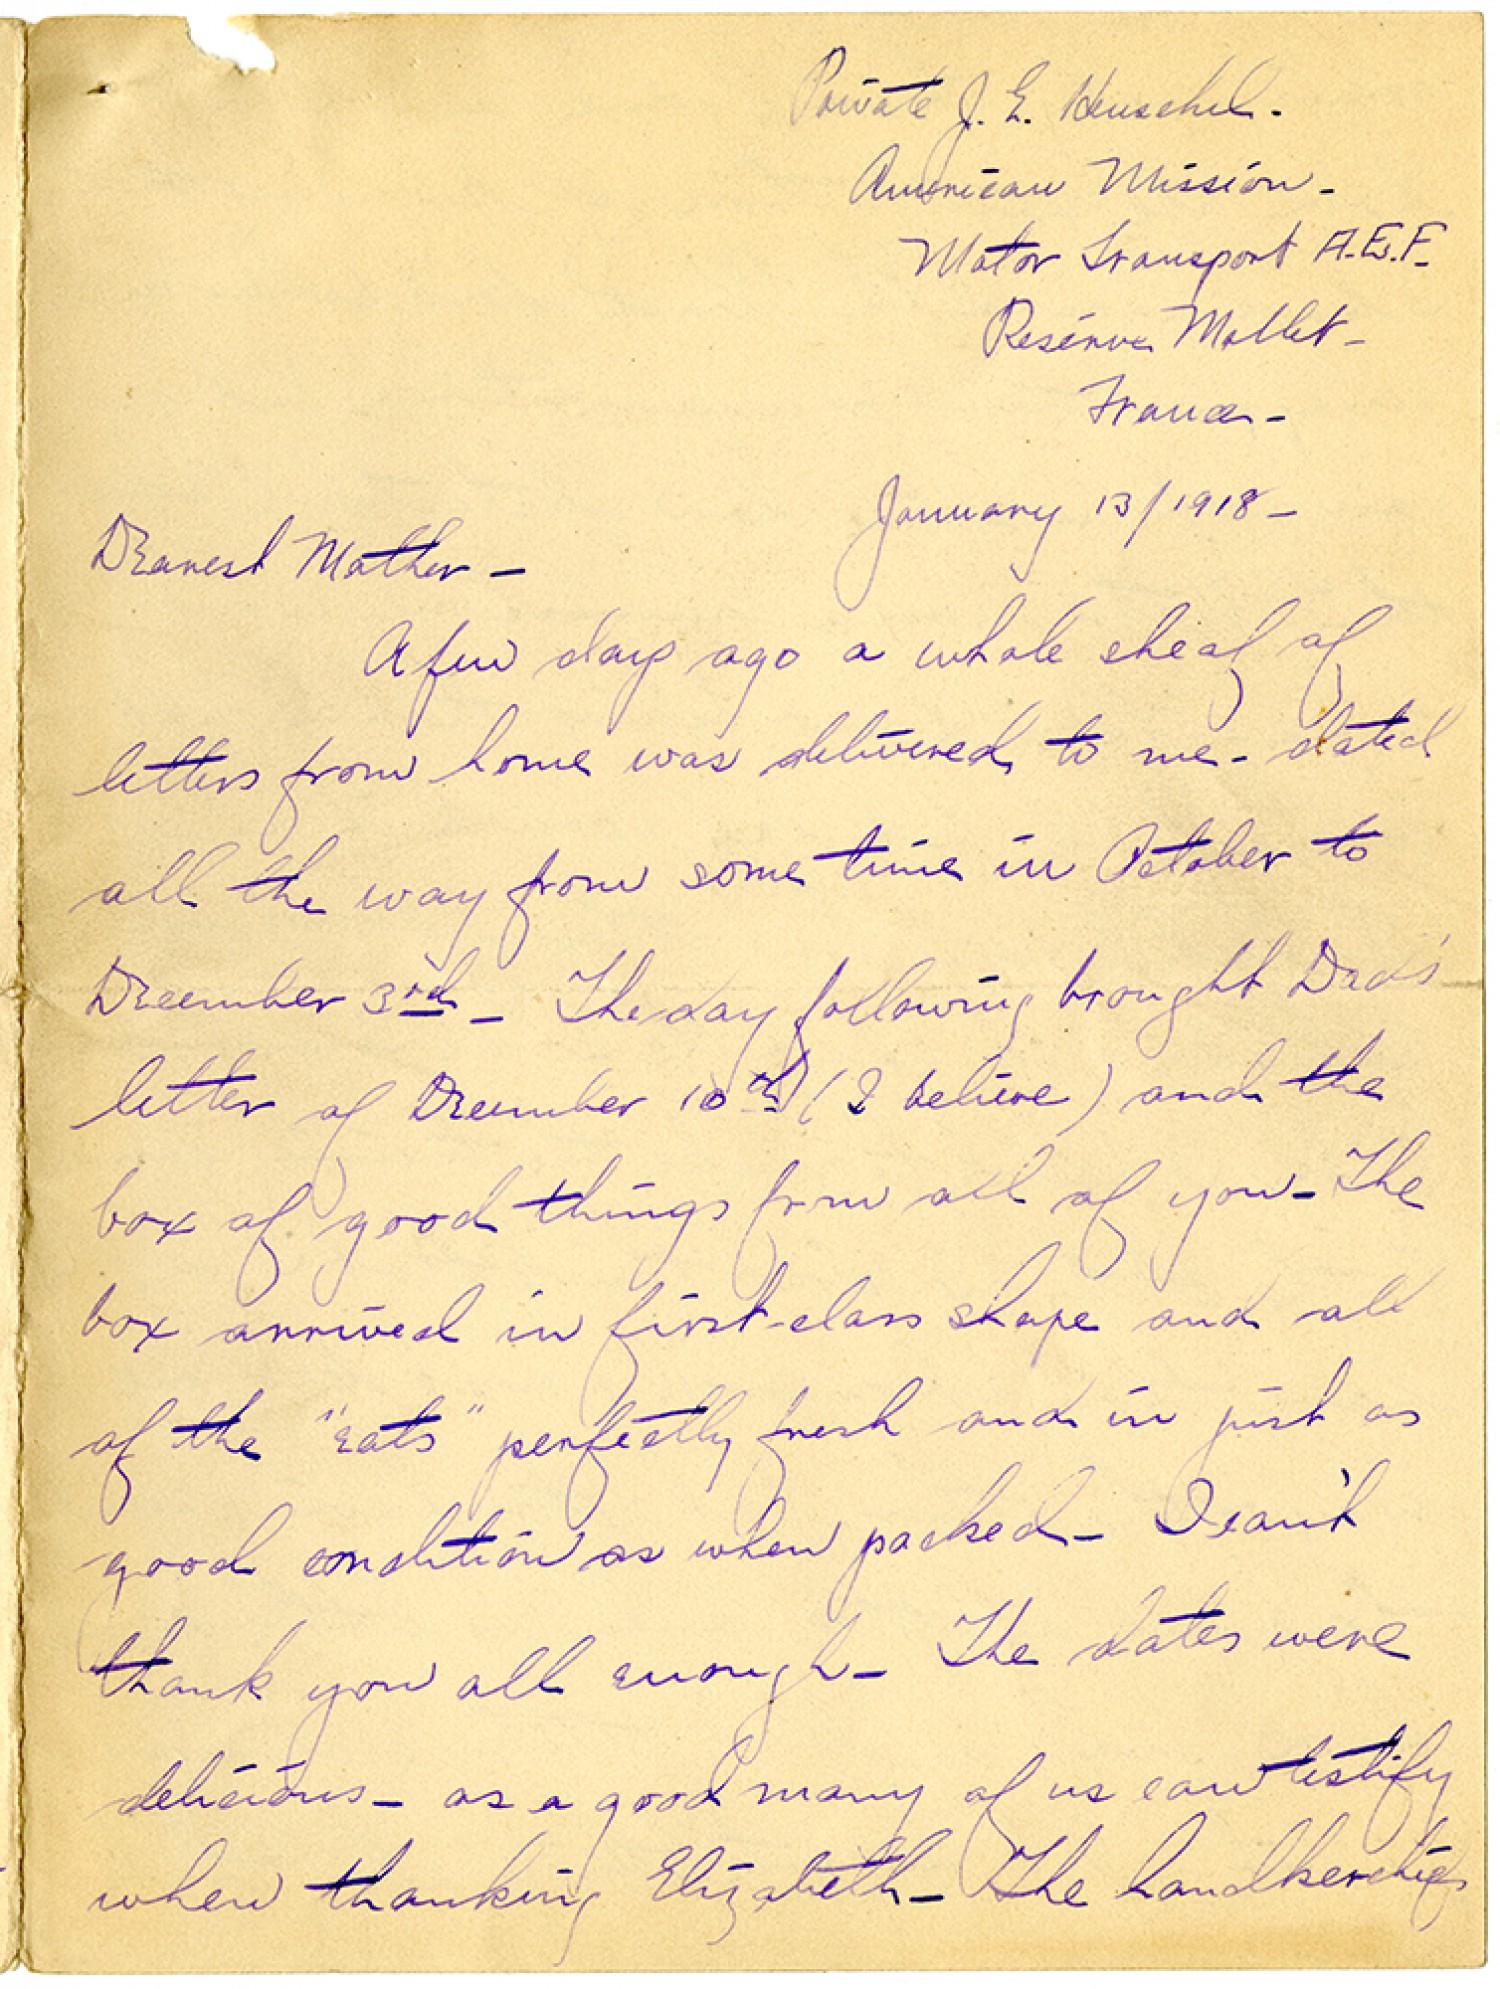 Private J. E. Henschel -
American Mission -
Motor Transport A.E.F.
Reserve Mallet -
France -
January 13/1918 -
Dearest Mother -
A few days ago a whole sheaf of
letters from home was delivered to me - dated
all the way from some time in October to
December 3rd - The day following brought Dad's
letter of December 10th (I believe) and the
box of good things from all of you - The
box arrived in first-class shape and all
of the "eats" perfectly fresh and in just as
good condition as when packed - I can't
thank you all enough - The dates were
delicious - as a good many of us can testify
when thanking Elizabeth - The handkerchiefs